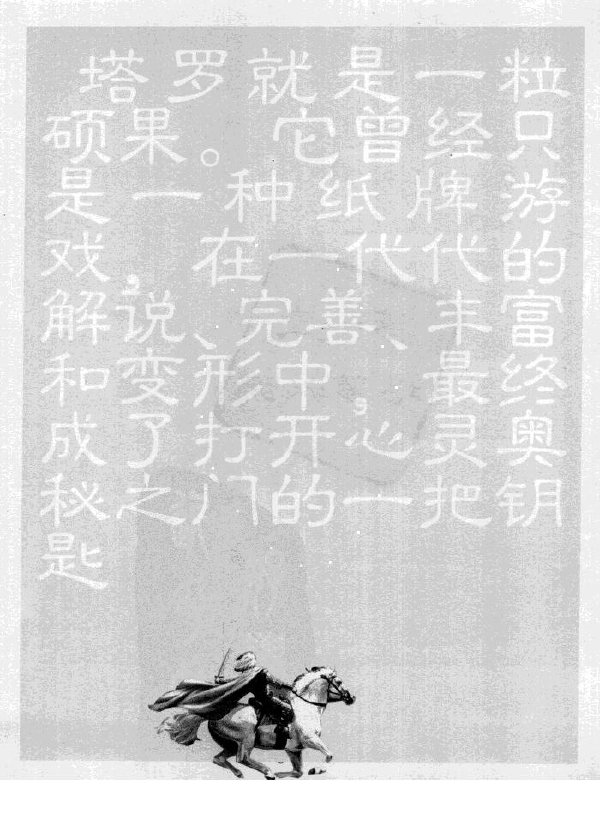 塔罗就是一粒
硕果。它曾经只
是一种纸牌游
戏,在一代代的
解说、完善、丰富
和变形中,最终
成了打开心灵奥
秘之门的一把钥
匙